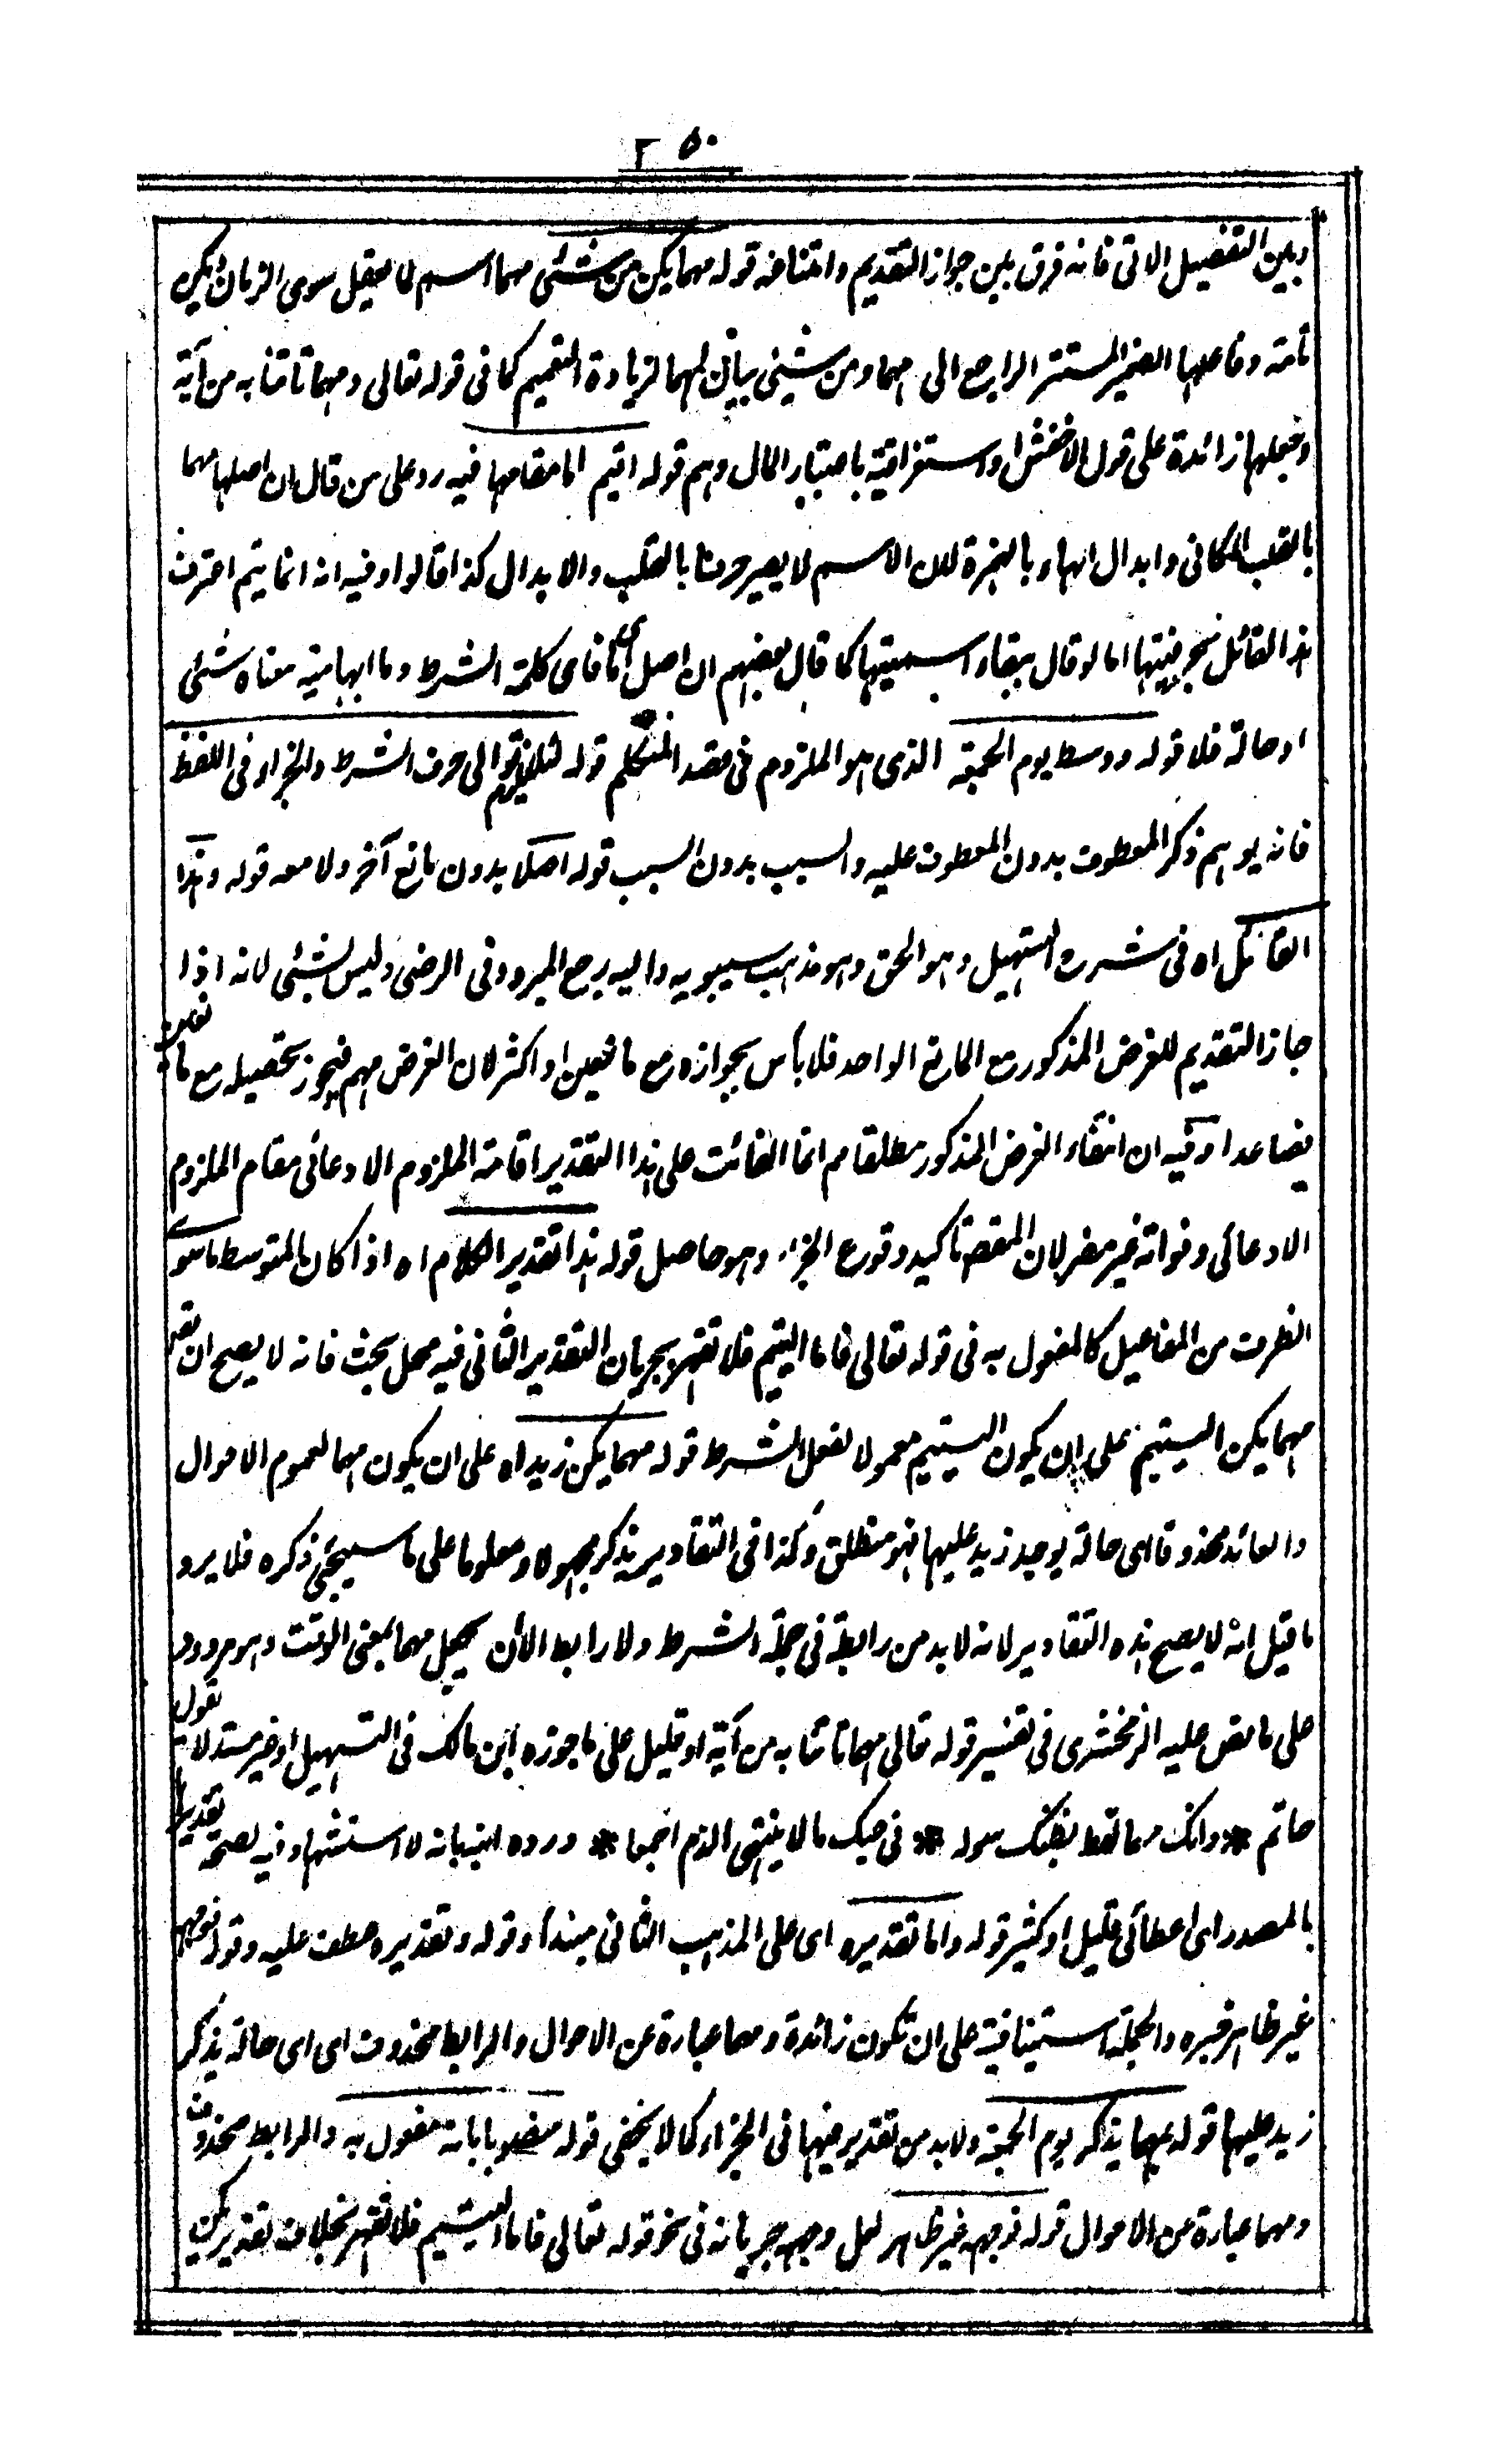 ٢٥٠
وبين التفصيل الاتى فانه فرق بين جواز التقديم وامتناعه قوله مهما يكن من شئى مهما اسم لما يعقل سوى الزمان ويكن
تامة وفاعلها الضمير المستتر الراجع الى مهما ومن شيئى بيان لمهما لزيادة التعميم كما فى قوله تعالى ومهما تاتنا به من آية
وجعلها زائدة على قول الاخفش او استغراقية باعتبار المال وهم قوله اقيم اما مقامها فيه رد على من قال ان اصلها مهما
بالقلب المكانى وابدال الهاء بالهمزة لان الاسم لا يصير حرفا بالقلب والابدال كذا قالوا وفيه انه انما يتم اعترف
هذا القائل بحرفيتها اما لو قال ببقاء اسميتها كما قال بعضهم ان اصل اما فاى كلمة الشرط وما ابهامية معناه شئى
او حالة فلا قوله ووسط يوم الجمعة الذى هو الملزوم فى قصد المتكلم قوله لئلا يلزم توالى حرف الشرط والجزاء فى اللفظ
فانه يوهم ذكر المعطوف بدون المعطوف عليه والسبب بدون السبب قوله اصلا بدون مانع آخر ولا معه قوله وهذا
القائل اه فى شرح التسهيل وهو الحق وهو مذهب سيبويه واليه رجع المبرد وفى الرضى وليس بشئى لانه اذا
جاز التقديم للغرض المذكور مع المانع الواحد فلا بأس بجوازه مع مانعين او اكثر لان الغرض مهم فيجوز تحصيله مع مانعين
فصاعدا وفيه ان انتفاء الغرض المذكور مطلقا مم انما الفائت على هذا التقدير اقامة الملزوم الادعائى مقام الملزوم
الادعائى وفواته غير مضر لان المقص تاكيد وقوع الجزاء وهو حاصل قوله هذا تقدير الكلام اه اذا كان المتوسط ما سوى
الظرف من المفاعيل كالمفعول به فى قوله تعالى فاما اليتيم فلا تقهر بجريان التقدير الثانى فيه محل بحث فانه لا يصح ان يقدر
مهما يكن اليتيم على ان يكون اليتيم معمولا لفعل الشرط قوله مهما يكن زيد اه على ان يكون مهما لعموم الاحوال
والعائد محذوفا اى حالة يوجد زيد عليها فهو منطلق وكذا فى التقادير يذكر مجهولا ومعلوما على ما سيجئ ذكره فلا يرد
ما قيل انه لا يصح هذه التقادير لانه لا بد من رابطة فى جملة الشرط ولا رابط الا ان يجعل مهما بمعنى الوقت وهو مردود
على ما نص عليه الزمخشرى فى تفسير قوله تعالى مهما تاتنا به من آية او قليل على ما جوزه ابن مالك فى التسهيل وغيره مستدلا بقول
حاتم * وانك مهما تعط بطنك سوله * وفرجك نالا منتهى الذم اجمعا * ورده ابنه بانه لا استشهاد فيه لصحة تقديرها
بالمصدر اى اعطائى قليل او كثير قوله واما تقديره اى على المذهب الثانى مبتدأ وقوله وتقديره عطف عليه وقوله فوجهه
غير ظاهر خبره والجملة استينافية على ان تكون زائدة ومهما عبارة عن الاحوال والرابط محذوف اى اى حالة يذكر
زيد عليها قوله مهما يذكر يوم الجمعة ولا بد من تقدير فيها فى الجزاء كما لا يخفى قوله منصوبا بانه مفعول به والرابط محذوف
ومهما عبارة عن الاحوال قوله فوجهه غير ظاهر لعل وجهه جريانه فى نحو قوله تعالى فاما اليتيم فلا تقهر بخلاف تقدير يكن